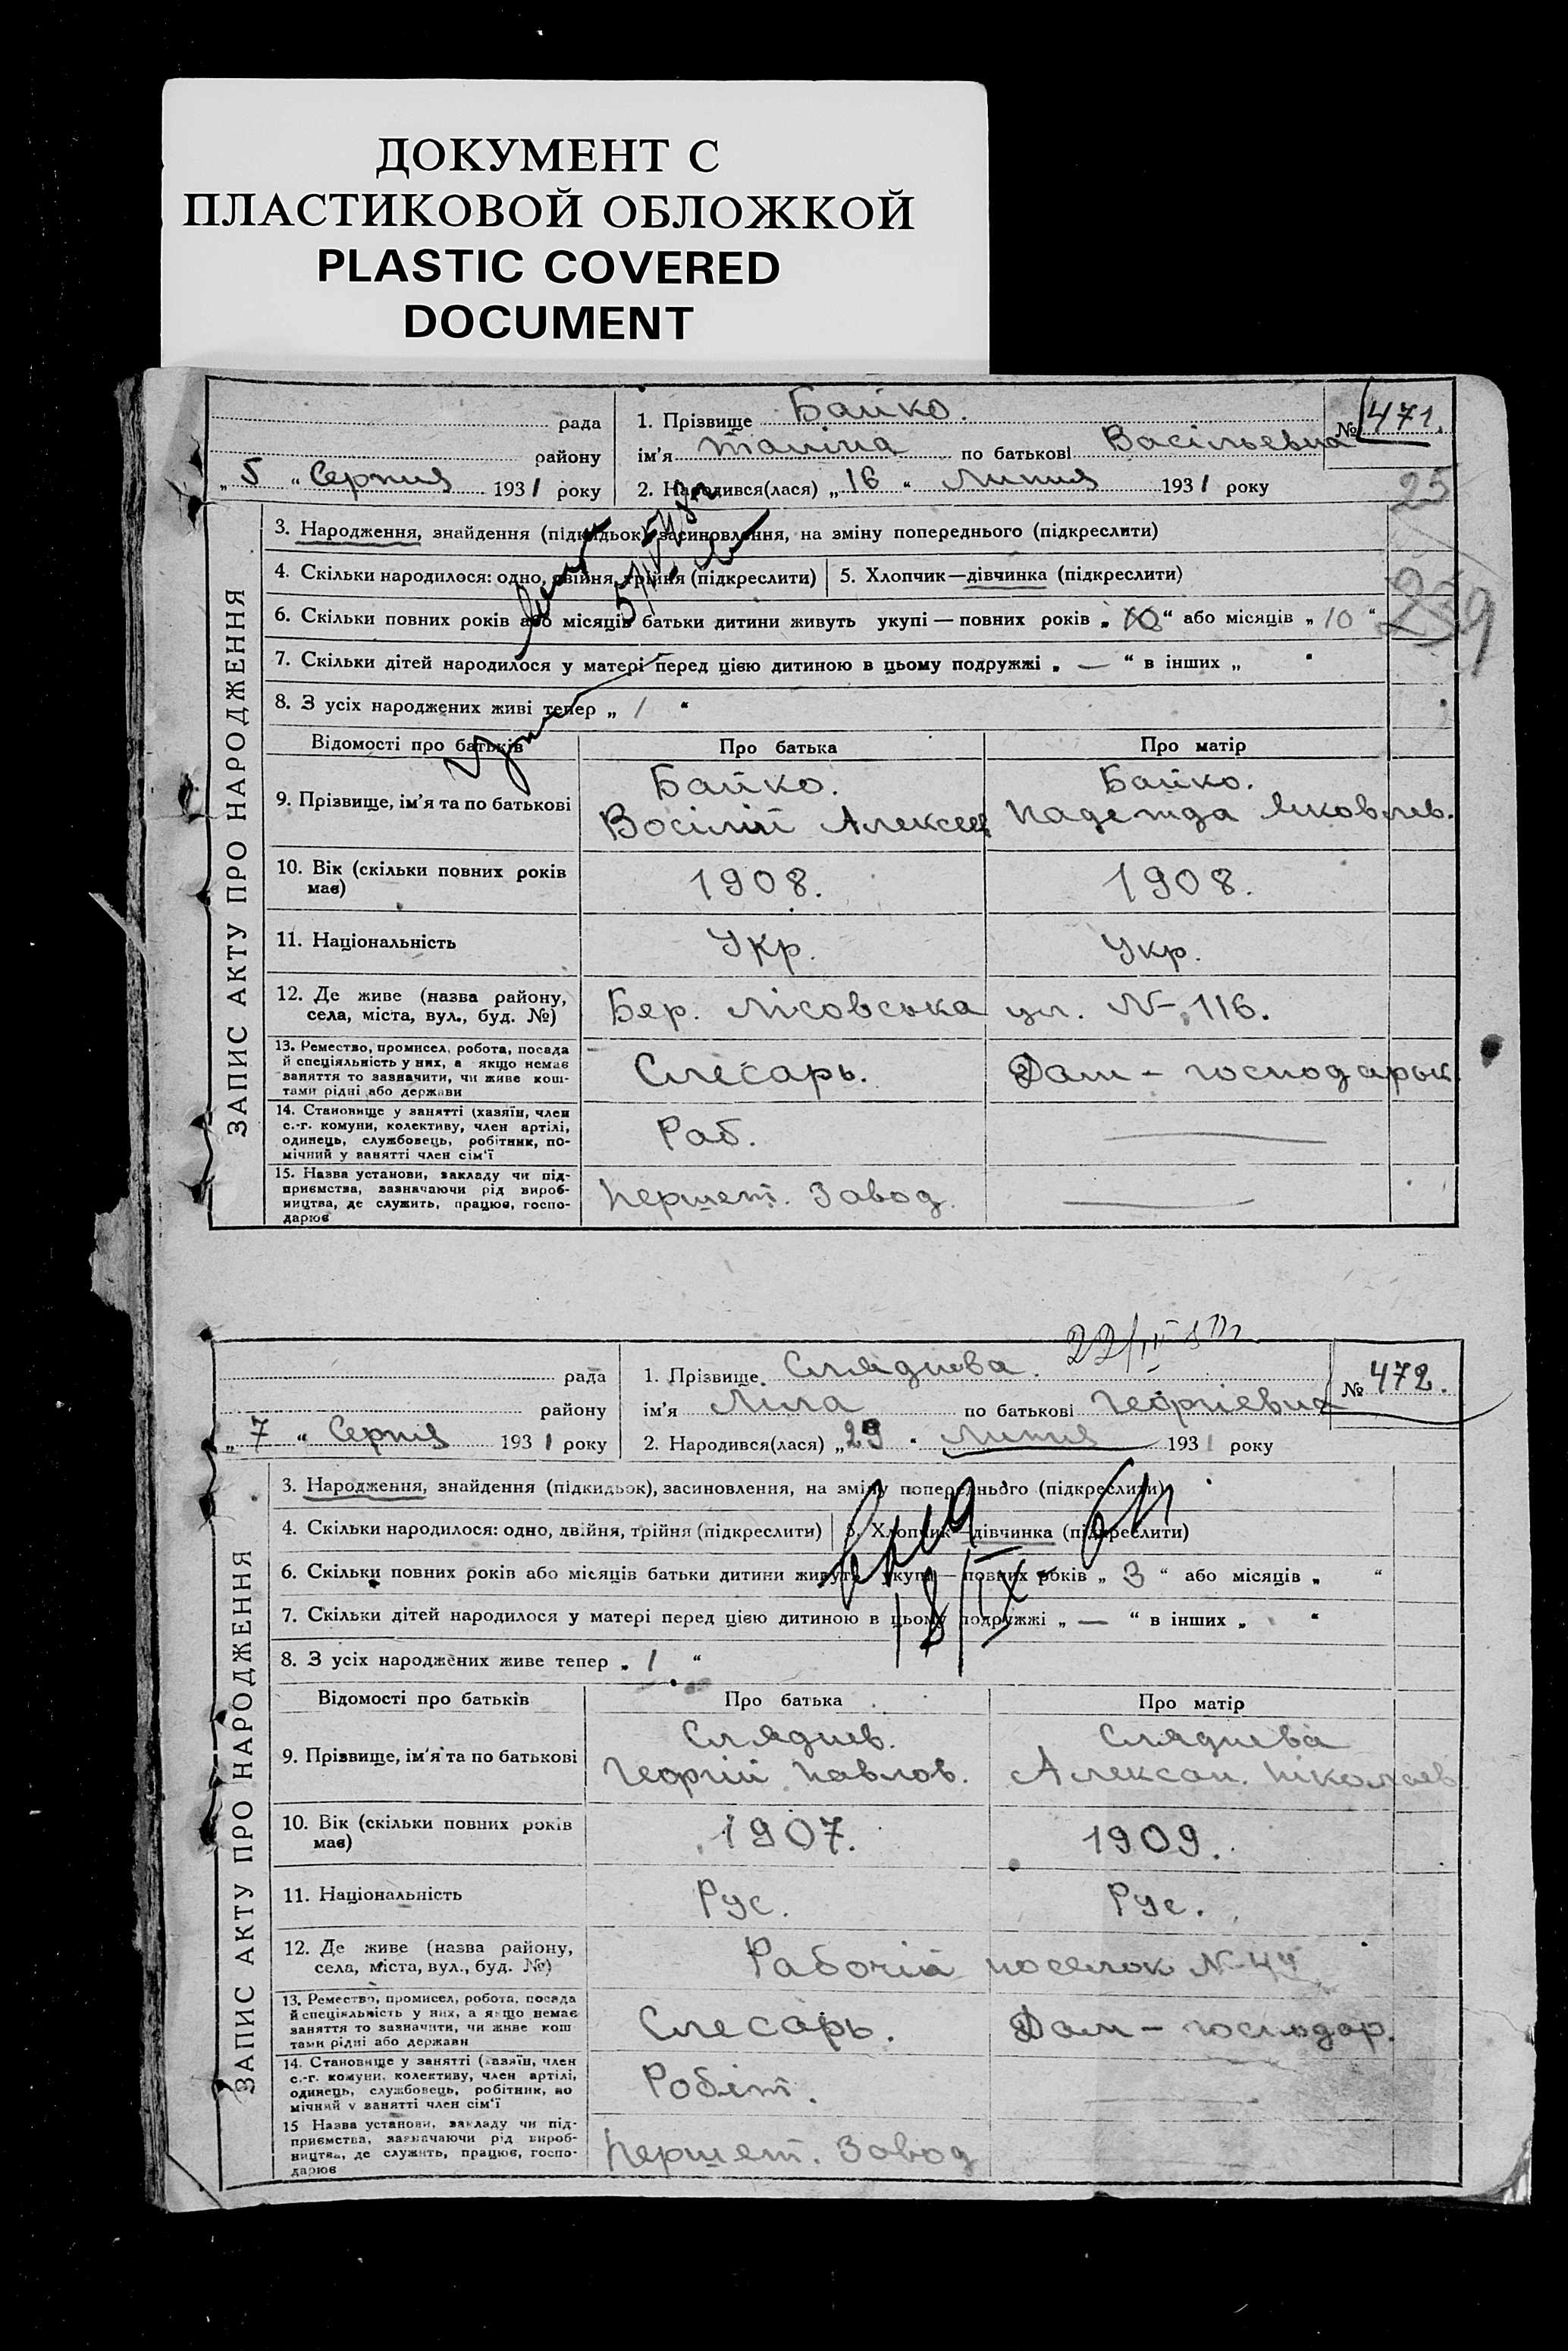 ДОКУМЕНТ С
ПЛАСТИКОВОЙ ОБЛОЖКОЙ
PLASTIC COVERED
DOCUMENT
рада
1. Прізвище Байко.
№ 471.
району
ім'я по батькові Васільевна
„ 5 “ Серпня 1931 року
2. Народився(лася) „ 16 “ Липня 1931 року
25
239
ЗАПИС АКТУ ПРО НАРОДЖЕННЯ
3. Народження, знайдення (підкидьок), засиновлення, на зміну попереднього (підкреслити)
4. Скільки народилося: одно, двійня, трійня (підкреслити)
5. Хлопчик—дівчинка (підкреслити)
6. Скільки повних років або місяців батьки дитини живуть укупі — повних років „ “ або місяців „ 10 “
7. Скільки дітей народилося у матері перед цією дитиною в цьому подружжі „ — “ в інших „ “
8. З усіх народжених живі тепер „ 1 “
Відомості про батьків
Про батька
Про матір
9. Прізвище, ім'я та по батькові
Байко.
Восілій Алексеев
Байко.
Надежда Яковлев.
10. Вік (скільки повних років має)
1908.
1908.
11. Національність
Укр.
Укр.
12. Де живе (назва району, села, міста, вул., буд. №)
Бер. Лісовська ул. N-116.
13. Ремество, промисел, робота, посада
й спеціяльність у них, а якщо немає
заняття то зазначити, чи живе кош-
тами рідні або держави
Слесарь.
Дом - господарьк.
14. Становище у занятті (хазяїн, член
с.-г. комуни, колективу, член артілі,
одинець, службовець, робітник, по-
мічний у занятті член сім'ї
Раб.
15. Назва установи, закладу чи під-
приємства, зазначаючи рід вироб-
ництва, де служить, працює, госпо-
дарює
Першет. Завод.
рада
1. Прізвище Сляднева.
№ 472.
району
ім'я Ліла по батькові Георгіевна
„ 7 “ Серпня 1931 року
2. Народився(лася) „ 29 “ Липня 1931 року
ЗАПИС АКТУ ПРО НАРОДЖЕННЯ
3. Народження, знайдення (підкидьок), засиновлення, на зміну попереднього (підкреслити)
4. Скільки народилося: одно, двійня, трійня (підкреслити)
5. Хлопчик—дівчинка (підкреслити)
6. Скільки повних років або місяців батьки дитини живуть укупі — повних років „ 3 “ або місяців „ “
7. Скільки дітей народилося у матері перед цією дитиною в цьому подружжі „ — “ в інших „ “
8. З усіх народжених живе тепер „ 1 “
18/IX
Відомості про батьків
Про батька
Про матір
9. Прізвище, ім'я та по батькові
Сляднев.
Георгій Павлов.
Сляднева
Алексан. Ніколаев
10. Вік (скільки повних років має)
1907.
1909.
11. Національність
Рус.
Рус.
12. Де живе (назва району, села, міста, вул., буд. №)
Рабочій поселок N-44
13. Ремество, промисел, робота, посада
й спеціяльність у них, а якщо немає
заняття то зазначити, чи живе кош
тами рідні або держави
Слесарь.
Дом - господар.
14. Становище у занятті (хазяїн, член
с.-г. комуни, колективу, член артілі,
одинець, службовець, робітник, по
мічний у занятті член сім'ї
Робіт.
15 Назва установи, закладу чи під-
приємства, зазначаючи рід вироб-
ництва, де служить, працює, госпо-
дарює
Першет. Завод